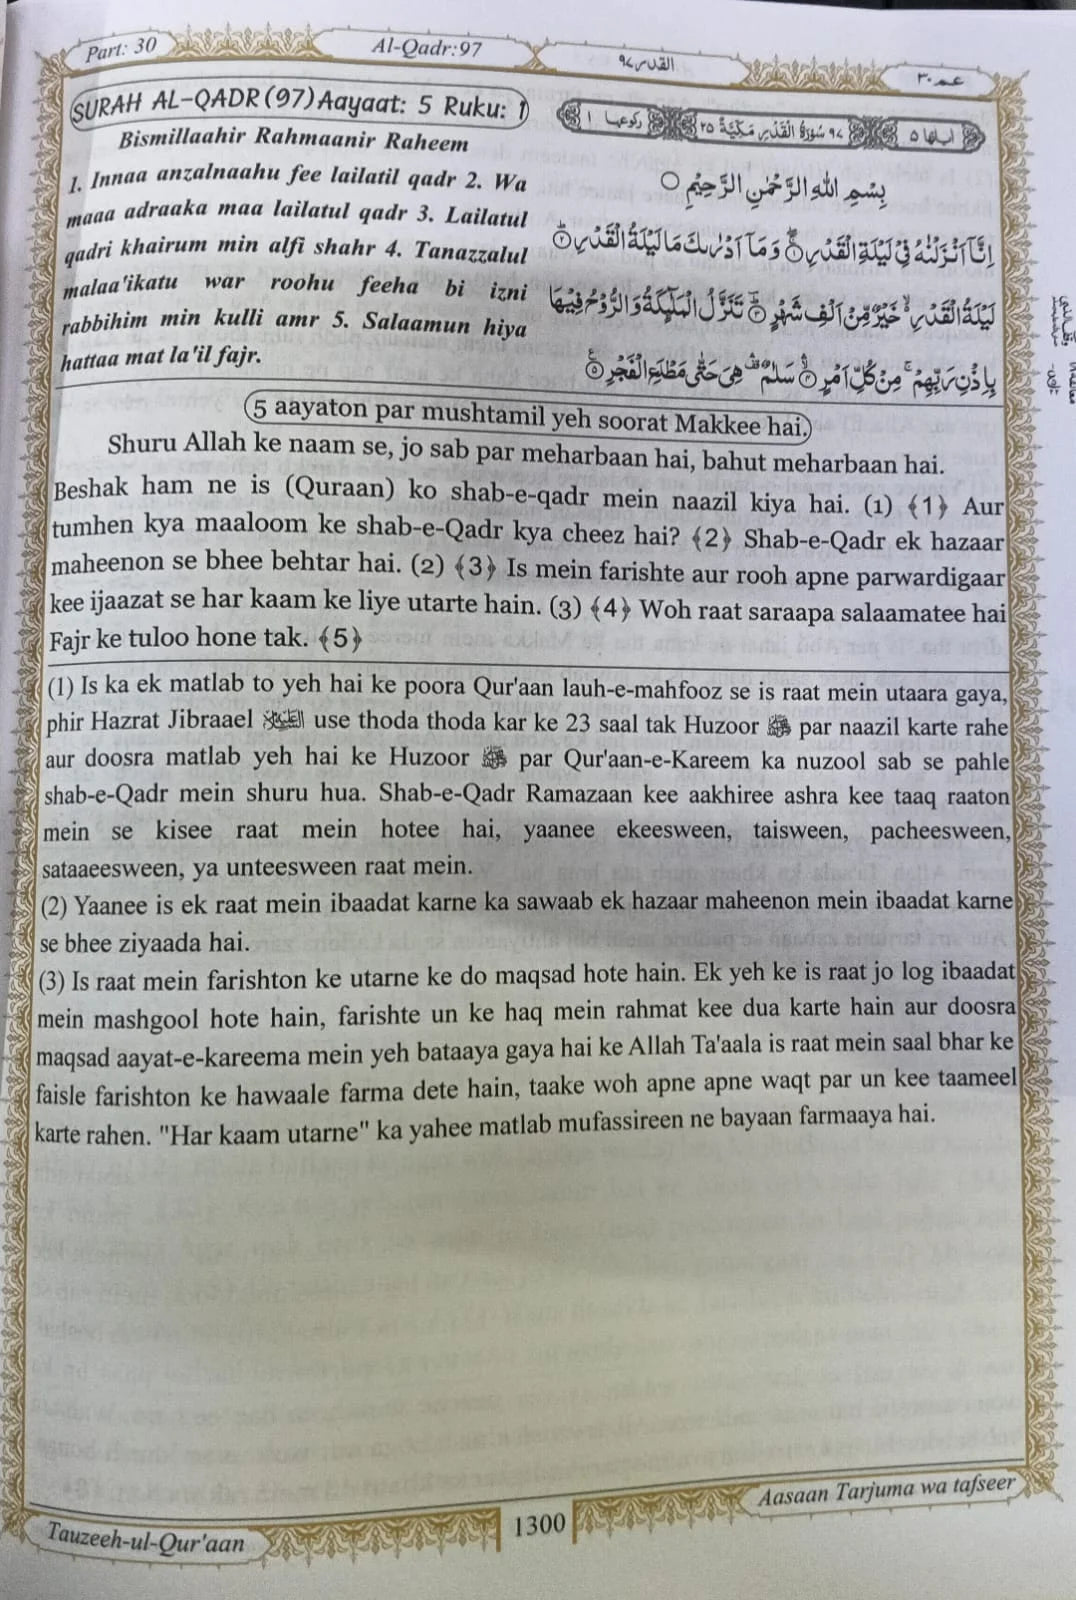 Part: 30
Al-Qadr:97
القدر ٩٧
عم ٣٠
SURAH AL-QADR (97) Aayaat: 5 Ruku: 1
Bismillaahir Rahmaanir Raheem
1. Innaa anzalnaahu fee lailatil qadr 2. Wa
maaa adraaka maa lailatul qadr 3. Lailatul
qadri khairum min alfi shahr 4. Tanazzalul
malaa'ikatu war roohu feeha bi izni
rabbihim min kulli amr 5. Salaamun hiya
hattaa mat la'il fajr.
اٰیاتها ٥ ٩٧ سُوْرَةُ الْقَدْرِ مَكِّيَّةٌ ٢٥ رکوعها ١
بِسْمِ اللّٰهِ الرَّحْمٰنِ الرَّحِيْمِ
اِنَّاۤ اَنْزَلْنٰهُ فِيْ لَيْلَةِ الْقَدْرِ ۝١ وَمَاۤ اَدْرٰىكَ مَا لَيْلَةُ الْقَدْرِ ۝٢
لَيْلَةُ الْقَدْرِ ۙ خَيْرٌ مِّنْ اَلْفِ شَهْرٍ ۝٣ تَنَزَّلُ الْمَلٰٓئِكَةُ وَالرُّوْحُ فِيْهَا
بِاِذْنِ رَبِّهِمْ ۚ مِنْ كُلِّ اَمْرٍ ۝٤ سَلٰمٌ ۛ هِيَ حَتّٰى مَطْلَعِ الْفَجْرِ ۝٥
5 aayaton par mushtamil yeh soorat Makkee hai.
Shuru Allah ke naam se, jo sab par meharbaan hai, bahut meharbaan hai.
Beshak ham ne is (Quraan) ko shab-e-qadr mein naazil kiya hai. (1) ﴾1﴿ Aur
tumhen kya maaloom ke shab-e-Qadr kya cheez hai? ﴾2﴿ Shab-e-Qadr ek hazaar
maheenon se bhee behtar hai. (2) ﴾3﴿ Is mein farishte aur rooh apne parwardigaar
kee ijaazat se har kaam ke liye utarte hain. (3) ﴾4﴿ Woh raat saraapa salaamatee hai
Fajr ke tuloo hone tak. ﴾5﴿
(1) Is ka ek matlab to yeh hai ke poora Qur'aan lauh-e-mahfooz se is raat mein utaara gaya,
phir Hazrat Jibraael عليه السلام use thoda thoda kar ke 23 saal tak Huzoor ﷺ par naazil karte rahe
aur doosra matlab yeh hai ke Huzoor ﷺ par Qur'aan-e-Kareem ka nuzool sab se pahle
shab-e-Qadr mein shuru hua. Shab-e-Qadr Ramazaan kee aakhiree ashra kee taaq raaton
mein se kisee raat mein hotee hai, yaanee ekeesween, taisween, pacheesween,
sataaeesween, ya unteesween raat mein.
(2) Yaanee is ek raat mein ibaadat karne ka sawaab ek hazaar maheenon mein ibaadat karne
se bhee ziyaada hai.
(3) Is raat mein farishton ke utarne ke do maqsad hote hain. Ek yeh ke is raat jo log ibaadat
mein mashgool hote hain, farishte un ke haq mein rahmat kee dua karte hain aur doosra
maqsad aayat-e-kareema mein yeh bataaya gaya hai ke Allah Ta'aala is raat mein saal bhar ke
faisle farishton ke hawaale farma dete hain, taake woh apne apne waqt par un kee taameel
karte rahen. "Har kaam utarne" ka yahee matlab mufassireen ne bayaan farmaaya hai.
Tauzeeh-ul-Qur'aan
1300
Aasaan Tarjuma wa tafseer